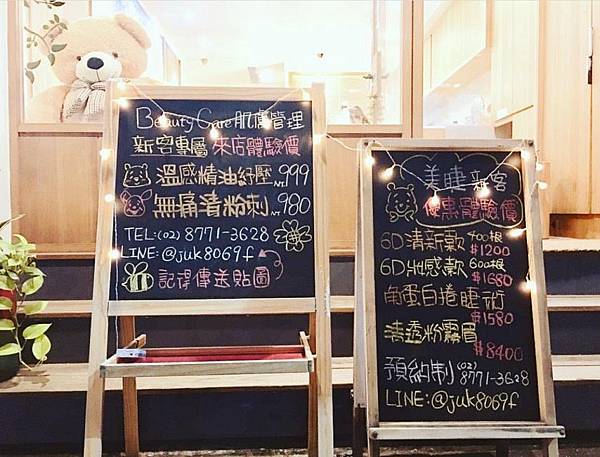 Beauty Care 肌膚管理
新客專屬 來店體驗價
溫感精油紓壓 NT.999
無痛清粉刺 NT.980
TEL:(02) 8771-3628
LINE:@juk8069f
記得傳送貼圖
美睫新客
優惠體驗價
6D清新款 400根
$1200
6D灿感款 600根
$1680
角蛋白捲睫術
$1580
清透粉霧眉
$8400
預約制 (02)8771-3628
LINE:@juk8069f